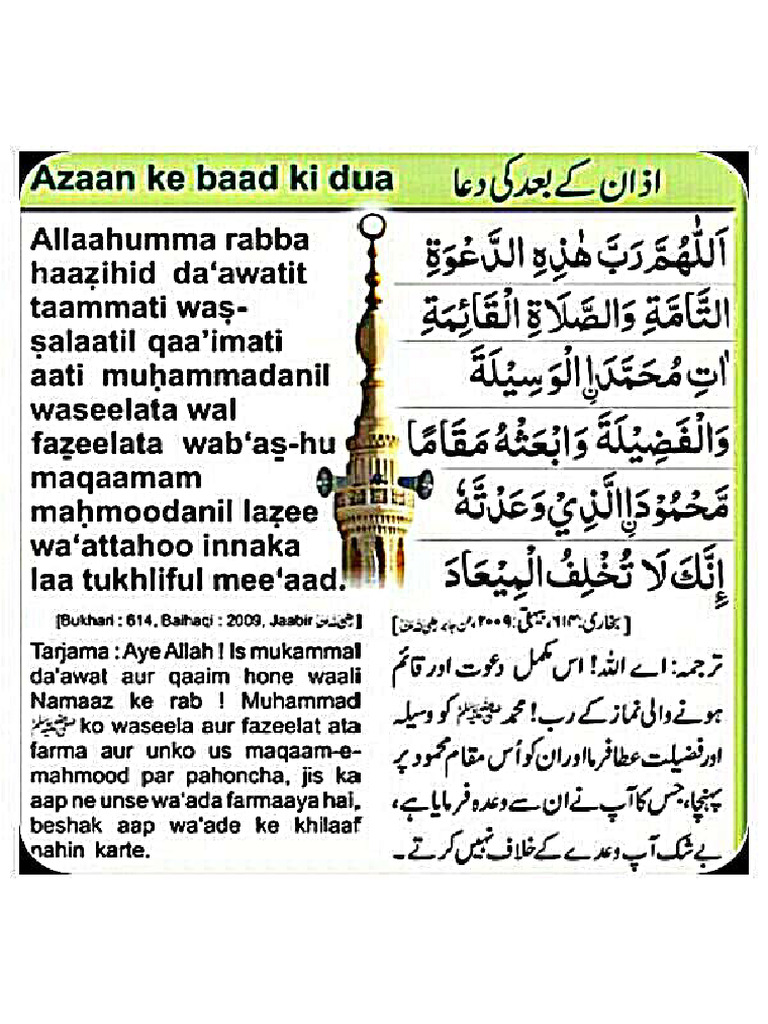 Azaan ke baad ki dua
اذان کے بعد کی دعا
Allaahumma rabba
haaẓihid da‘awatit
taammati waṣ-
ṣalaatil qaa’imati
aati muḥammadanil
waseelata wal
faẓeelata wab‘aṣ-hu
maqaamam
maḥmoodanil laẓee
wa‘attahoo innaka
laa tukhliful mee‘aad.
[Bukhari : 614, Baihaqi : 2009, Jaabir]
Tarjama : Aye Allah ! Is mukammal
da'awat aur qaaim hone waali
Namaaz ke rab ! Muhammad
ﷺ ko waseela aur fazeelat ata
farma aur unko us maqaam-e-
mahmood par pahoncha, jis ka
aap ne unse wa'ada farmaaya hai,
beshak aap wa'ade ke khilaaf
nahin karte.
اَللّٰهُمَّ رَبَّ هٰذِهِ الدَّعْوَةِ
التَّامَّةِ وَالصَّلَاةِ الْقَائِمَةِ
اٰتِ مُحَمَّدَاۨ الْوَسِيْلَةَ
وَالْفَضِيْلَةَ وَابْعَثْهُ مَقَامًا
مَّحْمُوْدَاۨ الَّذِيْ وَعَدْتَّهٗ
إِنَّكَ لَا تُخْلِفُ الْمِيْعَادَ
[بخاری: ۶۱۴، بیہقی: ۲۰۰۹]
ترجمہ: اے اللہ! اس مکمل دعوت اور قائم
ہونے والی نماز کے رب! محمد ﷺ کو وسیلہ
اور فضیلت عطا فرما اور ان کو اُس مقام محمود پر
پہنچا، جس کا آپ نے ان سے وعدہ فرمایا ہے،
بے شک آپ وعدے کے خلاف نہیں کرتے۔